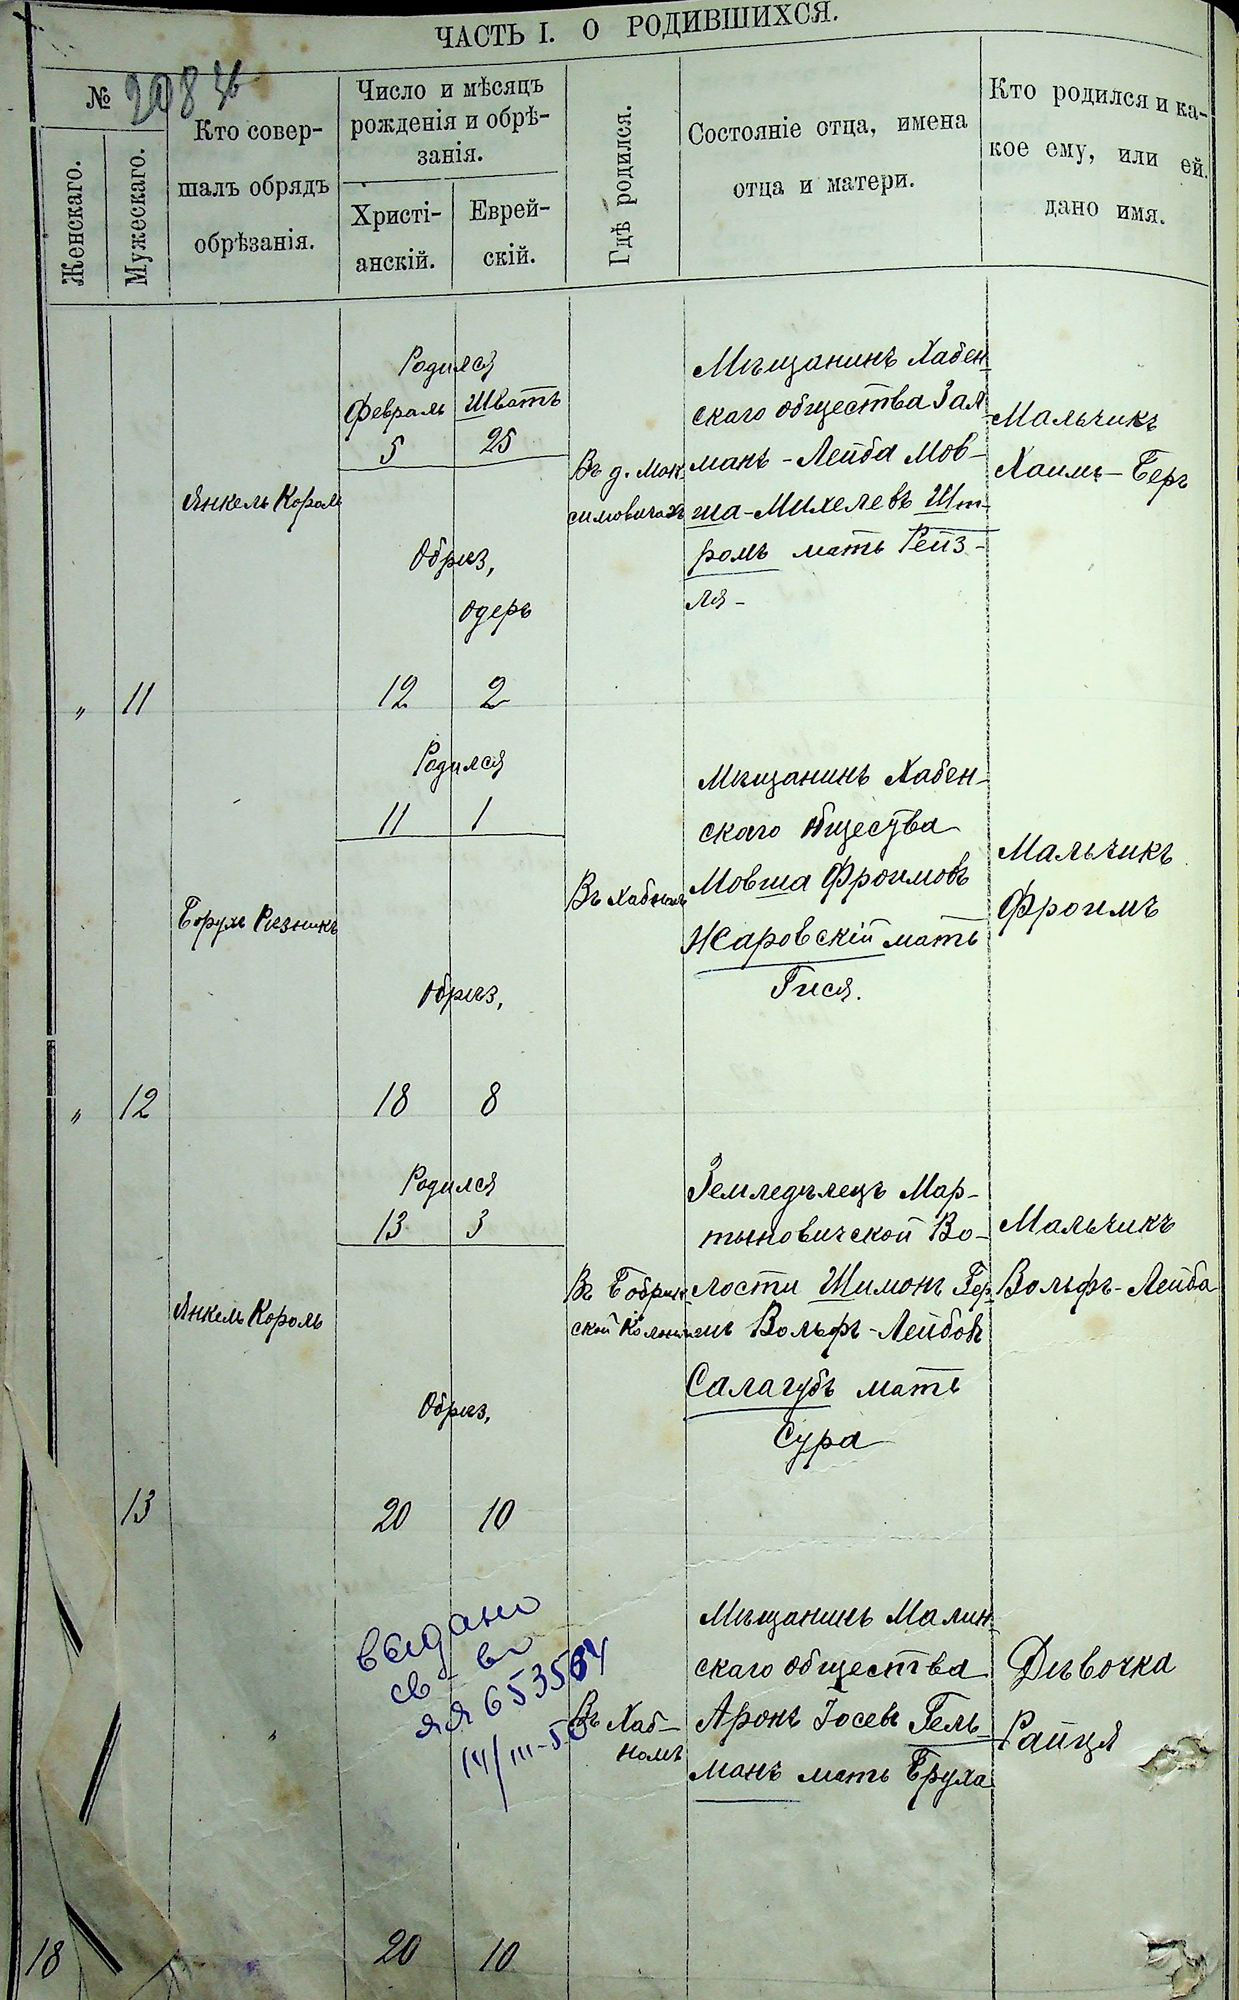 ЧАСТЬ I. О РОДИВШИХСЯ.
№
Женскаго.
Мужескаго.
Кто совер-
шалъ обрядъ
обрѣзанія.
Число и мѣсяцъ
рожденія и обрѣ-
занія.
Христі-
анскій.
Еврей-
скій.
Гдѣ родился.
Состояніе отца, имена
отца и матери.
Кто родился и ка-
кое ему, или ей
дано имя.
„ 11
Янкель Король
Родился
Февраль Шватъ
5 25
Обрѣз,
Одеръ
12 2
Въ д. Мак
симовичахъ
Мѣщанинъ Хабен-
скаго общества Зал
манъ-Лейба Мов-
ша-Михелевъ Шт-
ромъ мать Рейз-
ля-
Мальчикъ
Хаимъ-Беръ
„ 12
Борухъ Рѣзникъ
Родился
11 1
Обрѣз,
18 8
Въ Хабномъ
Мѣщанинъ Хабен-
скаго общества
Мовша Фроимовъ
Жаровскій мать
Гися.
Мальчикъ
Фроимъ
13
Янкель Король
Родился
13 3
Обрѣз,
20 10
Въ Бобрин
ской Колоніи
Земледѣлецъ Мар-
тыновичской Во-
лости Шимонъ Бер
ль Вольфъ-Лейбов
Салагубъ мать
Сура
Мальчикъ
Вольфъ-Лейба
18
„
выдано
св-во
яя 653564
20 10
Въ Хаб-
номъ
Мѣщанинъ Малин
скаго общества
Аронъ Іосевъ Гель-
манъ мать Бруха
Дѣвочка
Райця